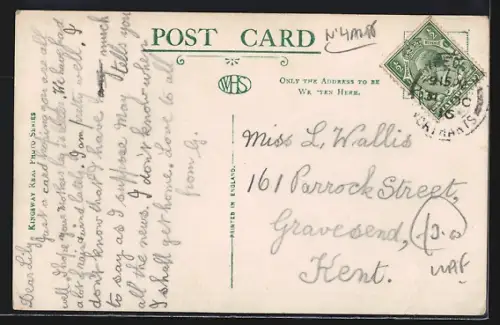 POST CARD
N'4ALTS
WHS
ONLY THE ADDRESS TO BE
WRITTEN HERE.
KINGSWAY REAL PHOTO SERIES
PRINTED IN ENGLAND.
Dear Lily,
Just a card hoping you are all
well. I hope your Mother is better. We have had
a lot of rain and lately. I am pretty well. I
don't know that I have much
to say as I suppose May tells you
all the news. I don't know when
I shall get home. Love to all
from G.
Miss L. Wallis
161 Parrock Street,
Gravesend,
Kent.
9.15
16